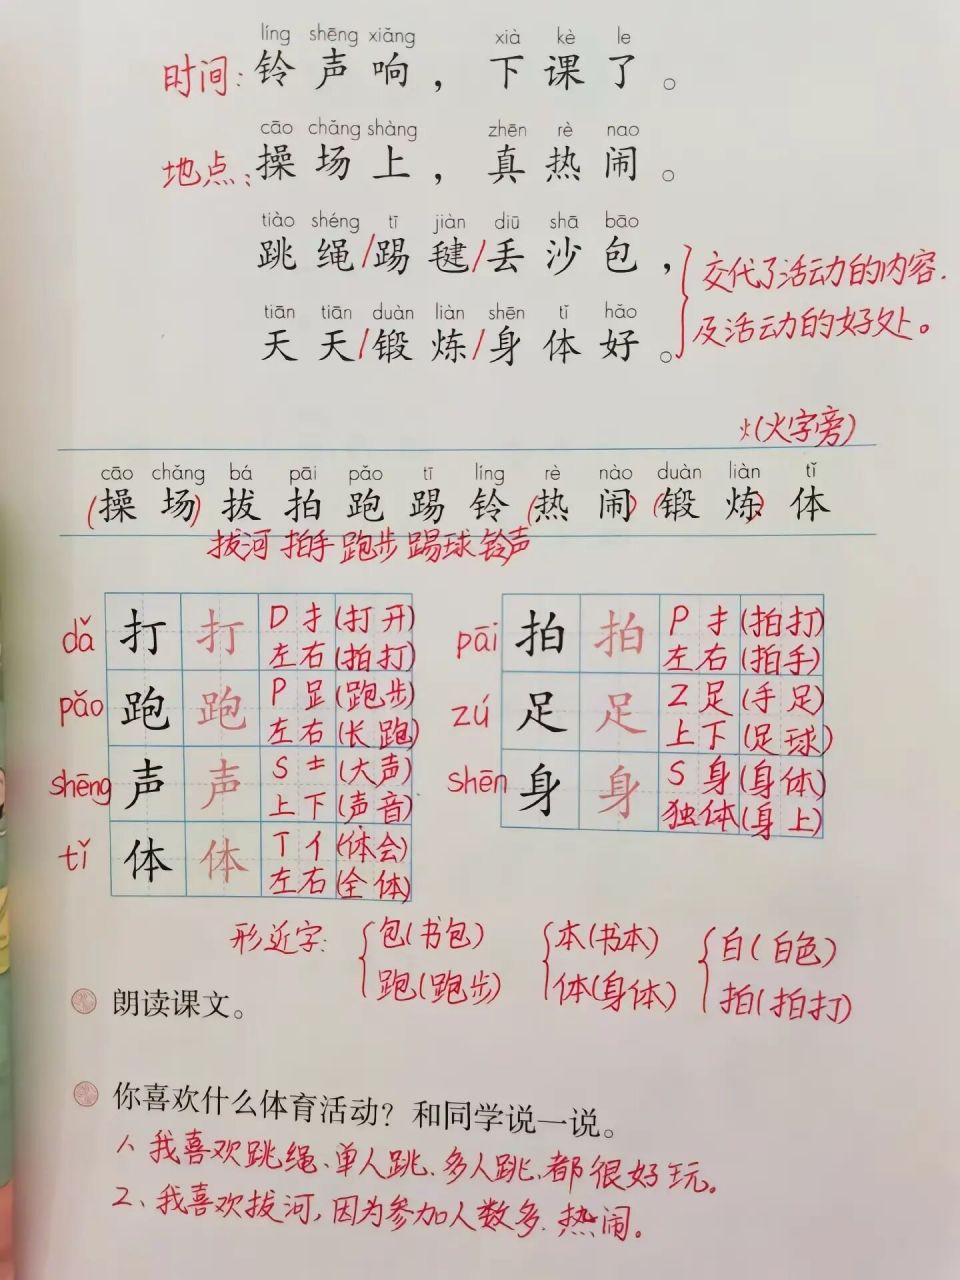 líng shēng xiǎng xià kè le
时间：铃声响，下课了。
cāo chǎng shàng zhēn rè nao
地点：操场上，真热闹。
tiào shéng tī jiàn diū shā bāo
跳绳/踢毽/丢沙包，
交代了活动的内容.
tiān tiān duàn liàn shēn tǐ hǎo
天天/锻炼/身体好。
及活动的好处。
火(火字旁)
cāo chǎng bá pāi pǎo tī líng rè nào duàn liàn tǐ
(操场)拔拍跑踢铃(热闹)(锻炼)体
拔河 拍手 跑步 踢球 铃声
dǎ 打 打 D 扌 (打开)
左右 (拍打)
pāi 拍 拍 P 扌 (拍打)
左右 (拍手)
pǎo 跑 跑 P 𧾷 (跑步)
左右 (长跑)
zú 足 足 Z 足 (手足)
上下 (足球)
shēng 声 声 S 士 (大声)
上下 (声音)
shēn 身 身 S 身 (身体)
独体 (身上)
tǐ 体 体 T 亻 (体会)
左右 (全体)
形近字: 包(书包) 本(书本) 白(白色)
跑(跑步) 体(身体) 拍(拍打)
朗读课文。
你喜欢什么体育活动？和同学说一说。
1、我喜欢跳绳、单人跳、多人跳、都很好玩。
2、我喜欢拔河，因为参加人数多、热闹。